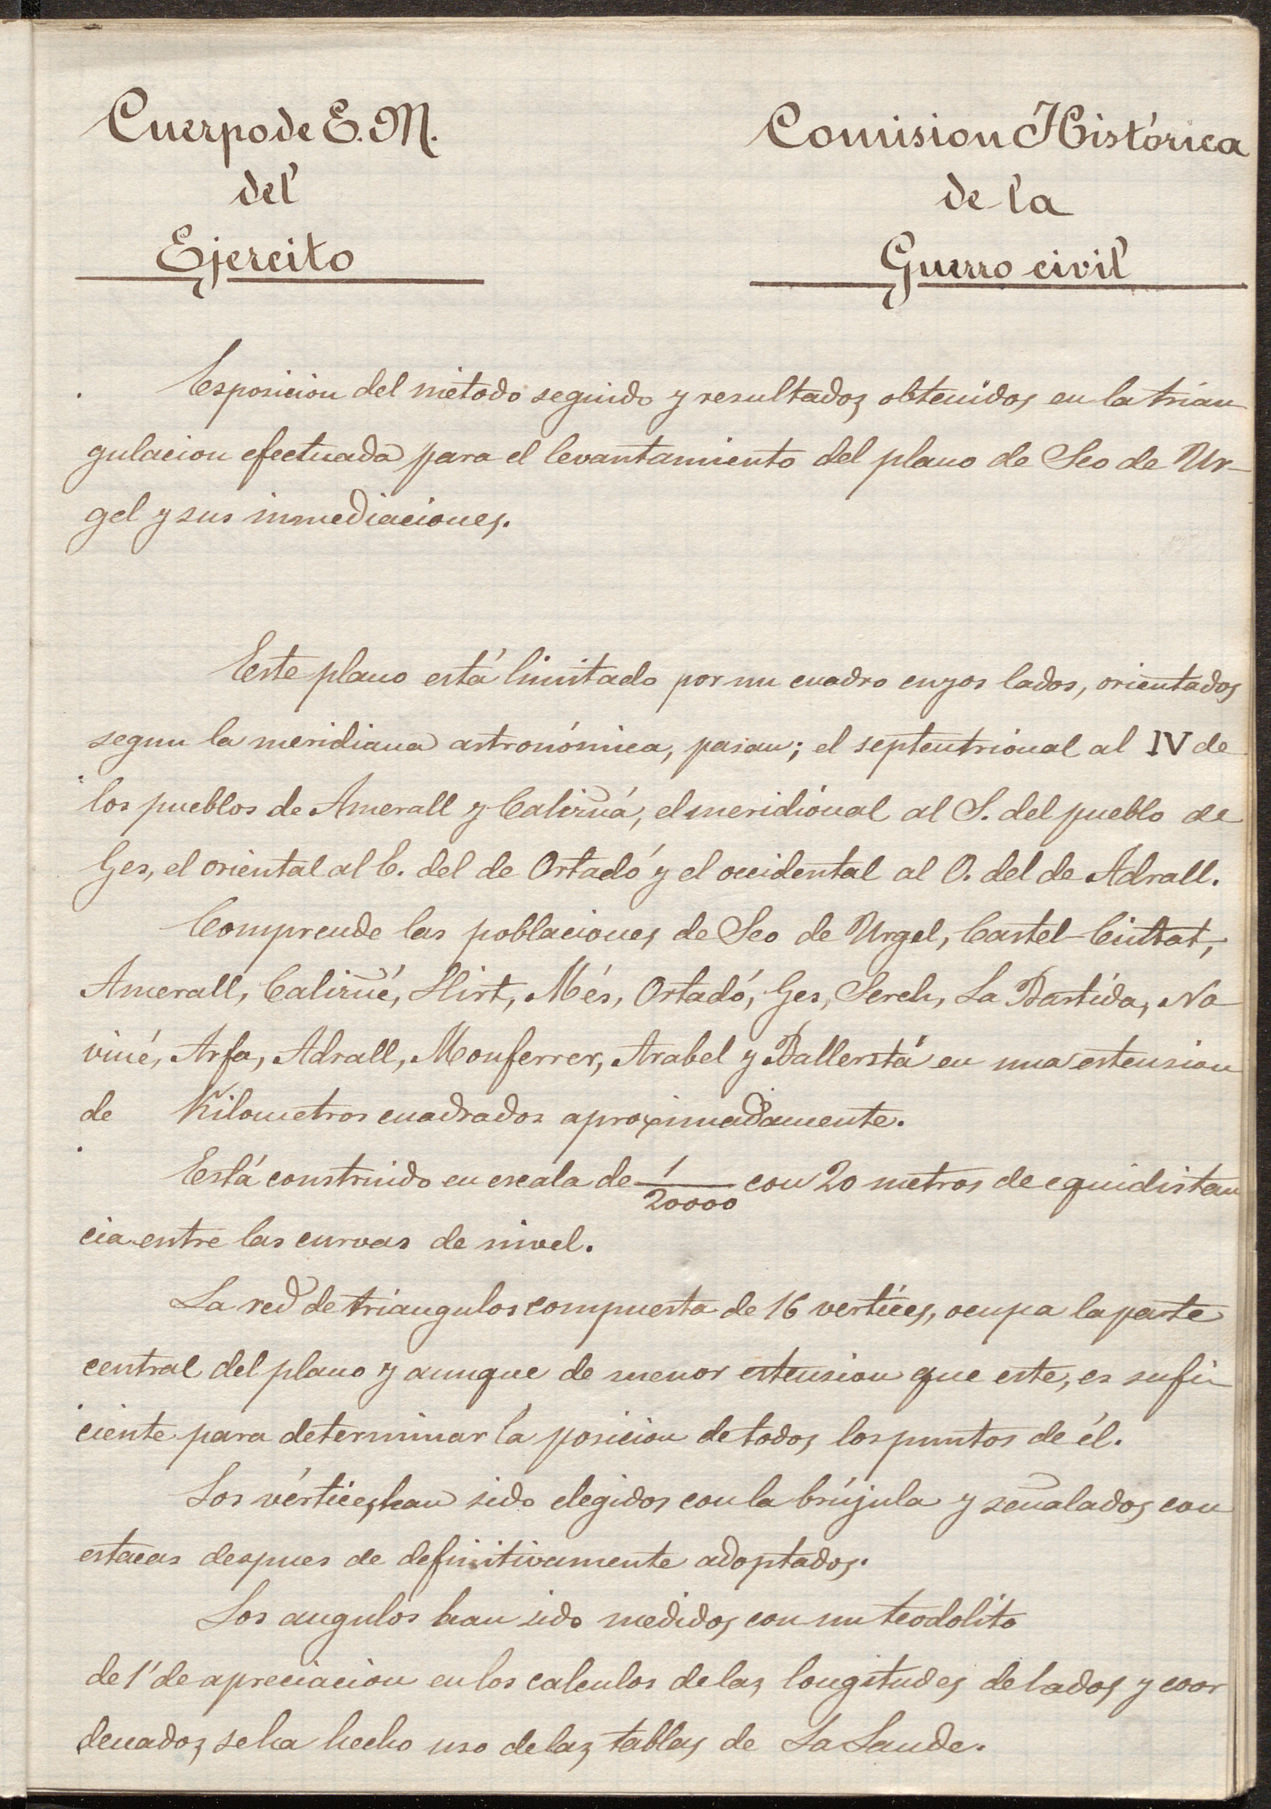 Cuerpo de E. M.
del
Ejercito
Comision Histórica
de la
Guerra civil
Esposicion del método seguido y resultados obtenidos en la trian
gulacion efectuada para el levantamiento del plano de Seo de Ur-
gel y sus inmediaciones.
Este plano está limitado por un cuadro cuyos lados, orientados
segun la meridiana astronómica, pasan; el septentrional al N de
los pueblos de Amerall y Calizná, el meridional al S. del pueblo de
Ges, el oriental al E. del de Ortadó y el occidental al O. del de Adrall.
Comprende las poblaciones de Seo de Urgel, Castel-Ciutat,
Amerall, Calizñé, Llirt, Més, Ortadó, Ges, Serch, La Bastida, Na
viné, Arfa, Adrall, Monferrer, Arabel y Ballerstá en una estension
de Kilometros cuadrados aproximadamente.
Está construido en escala de 1/20000 con 20 metros de equidistan
cia entre las curvas de nivel.
La red de triangulos compuesta de 16 vertices, ocupa la parte
central del plano y aunque de menor estension que este, es sufi-
ciente para determinar la posicion de todos los puntos de él.
Los vértices han sido elegidos con la brújula y señalados con
estacas despues de definitivamente adoptados.
Los angulos han sido medidos con un teodolito
de 1' de apreciacion en los calculos de las longitudes de lados y coor
denadas se ha hecho uso de las tablas de La Lande.